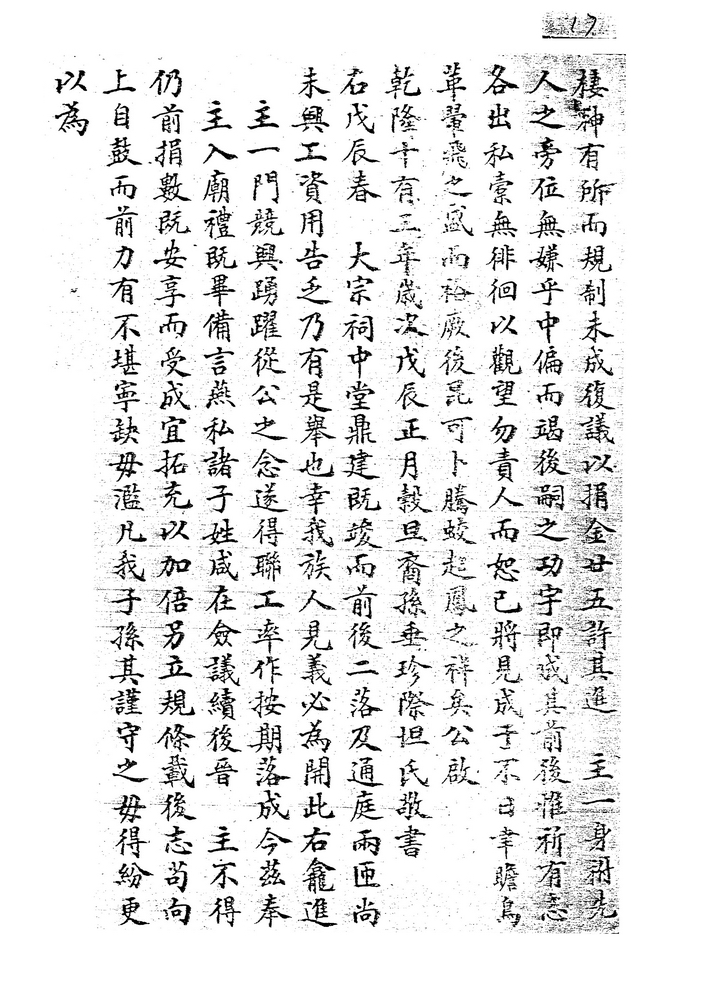 17
棲神有所而規制未成復議以捐金廿五許其進　主一身祔先
人之旁位無嫌乎中偏而竭後嗣之功宇即成其前後惟祈有志
各出私橐無徘徊以觀望勿責人而恕己將見成于不日聿瞻鳥
革翬飛之盛而裕厥後昆可卜騰蛟起鳳之祥矣公啟
乾隆十有三年歲次戊辰正月穀旦裔孫垂珍際坦氏敬書
右戊辰春　大宗祠中堂鼎建既竣而前後二落及通庭兩匝尚
未興工資用告乏乃有是舉也幸我族人見義必為開此右龕進
主一門競興踴躍從公之念遂得聯工率作按期落成今茲奉
主入廟禮既畢備言燕私諸子姓咸在僉議續後晉　主不得
仍前捐數既安享而受成宜拓充以加倍另立規條載後志茍向
上自鼓而前力有不堪寧缺毋濫凡我子孫其謹守之毋得紛更
以為